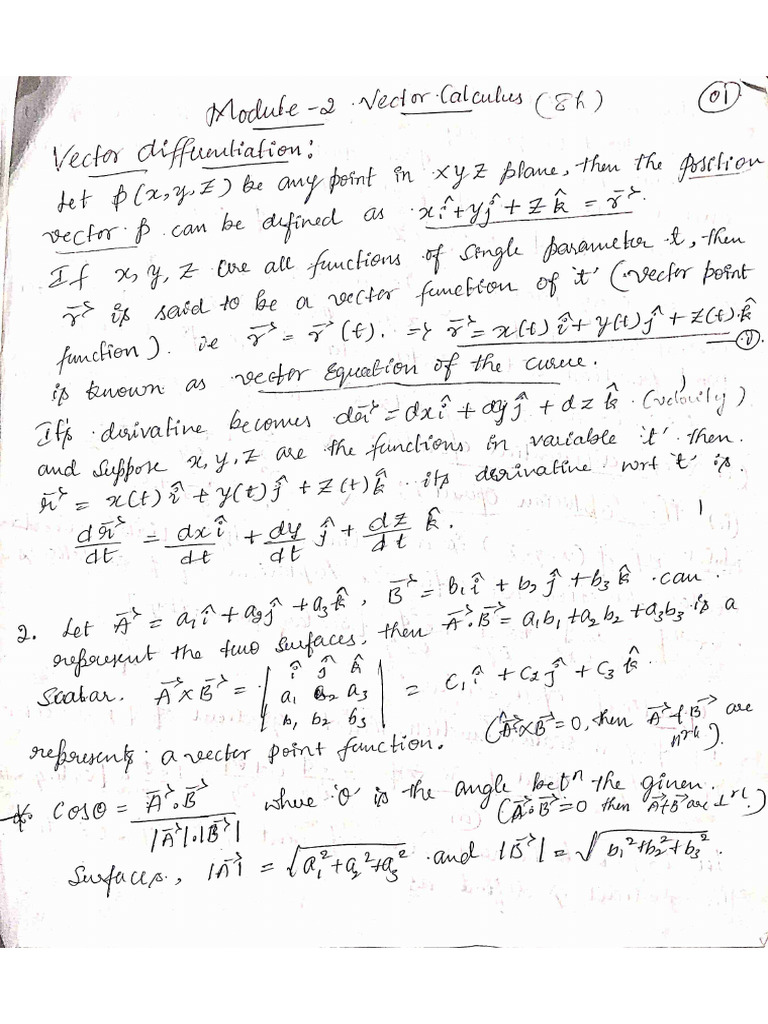 Module-2 Vector Calculus (8h) 01
Vector differentiation:
Let p(x,y,z) be any point in xyz plane, then the position
vector p can be defined as xî+yĵ+zk̂ = r⃗.
If x, y, z are all functions of single parameter t, then
r⃗ is said to be a vector function of 't' (vector point
function). ie r⃗ = r⃗(t). ⇒ r⃗ = x(t)î + y(t)ĵ + z(t)k̂ —①.
is known as vector Equation of the curve.
It's derivative becomes dr⃗ = dxî + dyĵ + dz k̂. (velocity)
and suppose x, y, z are the functions in variable 't' then.
r⃗ = x(t)î + y(t)ĵ + z(t)k̂ its derivative wrt 't' is.
dr⃗/dt = dx/dt î + dy/dt ĵ + dz/dt k̂.
2. Let A⃗ = a₁î + a₂ĵ + a₃k̂, B⃗ = b₁î + b₂ĵ + b₃k̂ can
represent the two surfaces, then A⃗.B⃗ = a₁b₁+a₂b₂+a₃b₃ is a
scalar. A⃗×B⃗ = | î ĵ k̂ |
| a₁ a₂ a₃ | = c₁î + c₂ĵ + c₃k̂.
| b₁ b₂ b₃ |
represents a vector point function. (A⃗×B⃗=0, then A⃗ & B⃗ are
).
* cosθ = A⃗.B⃗ / |A⃗|.|B⃗| where 'θ' is the angle betⁿ the given.
(A⃗.B⃗=0 then A⃗ & B⃗ are ⊥ʳˡ.)
Surfaces, |A⃗| = √a₁²+a₂²+a₃² and |B⃗| = √b₁²+b₂²+b₃².